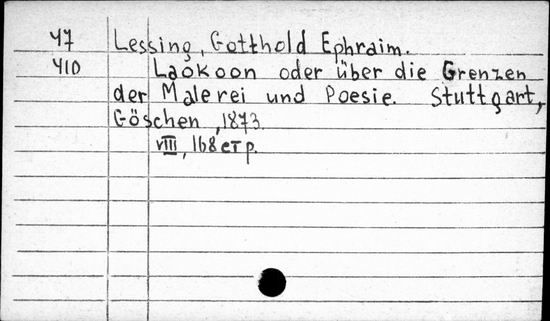 47 Lessing, Gotthold Ephraim.
410 Laokoon oder über die Grenzen
der Malerei und Poesie. Stuttgart,
Göschen, 1873.
VIII, 168 стр.